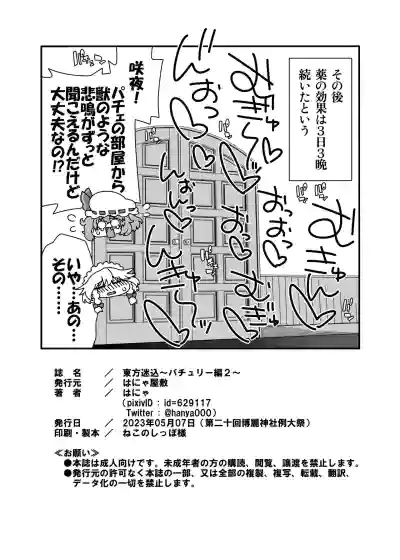 その後
薬の効果は3日3晩
続いたという
咲夜！
パチェの部屋から
獣のような
悲鳴がずっと
聞こえるんだけど
大丈夫なの!?
いや…あの…
その……
誌　名　／　東方迷込～パチュリー編２～
発行元　／　はにゃ屋敷
著　者　／　はにゃ
（pixivID : id=629117
Twitter : @hanya000）
発行日　／　2023年05月07日（第二十回博麗神社例大祭）
印刷・製本　／　ねこのしっぽ様
≪お願い≫
●本誌は成人向けです。未成年者の方の購読、閲覧、譲渡を禁止します。
●発行元の許可なく本誌の一部、又は全部の複製、複写、転載、翻訳、
データ化の一切を禁止します。